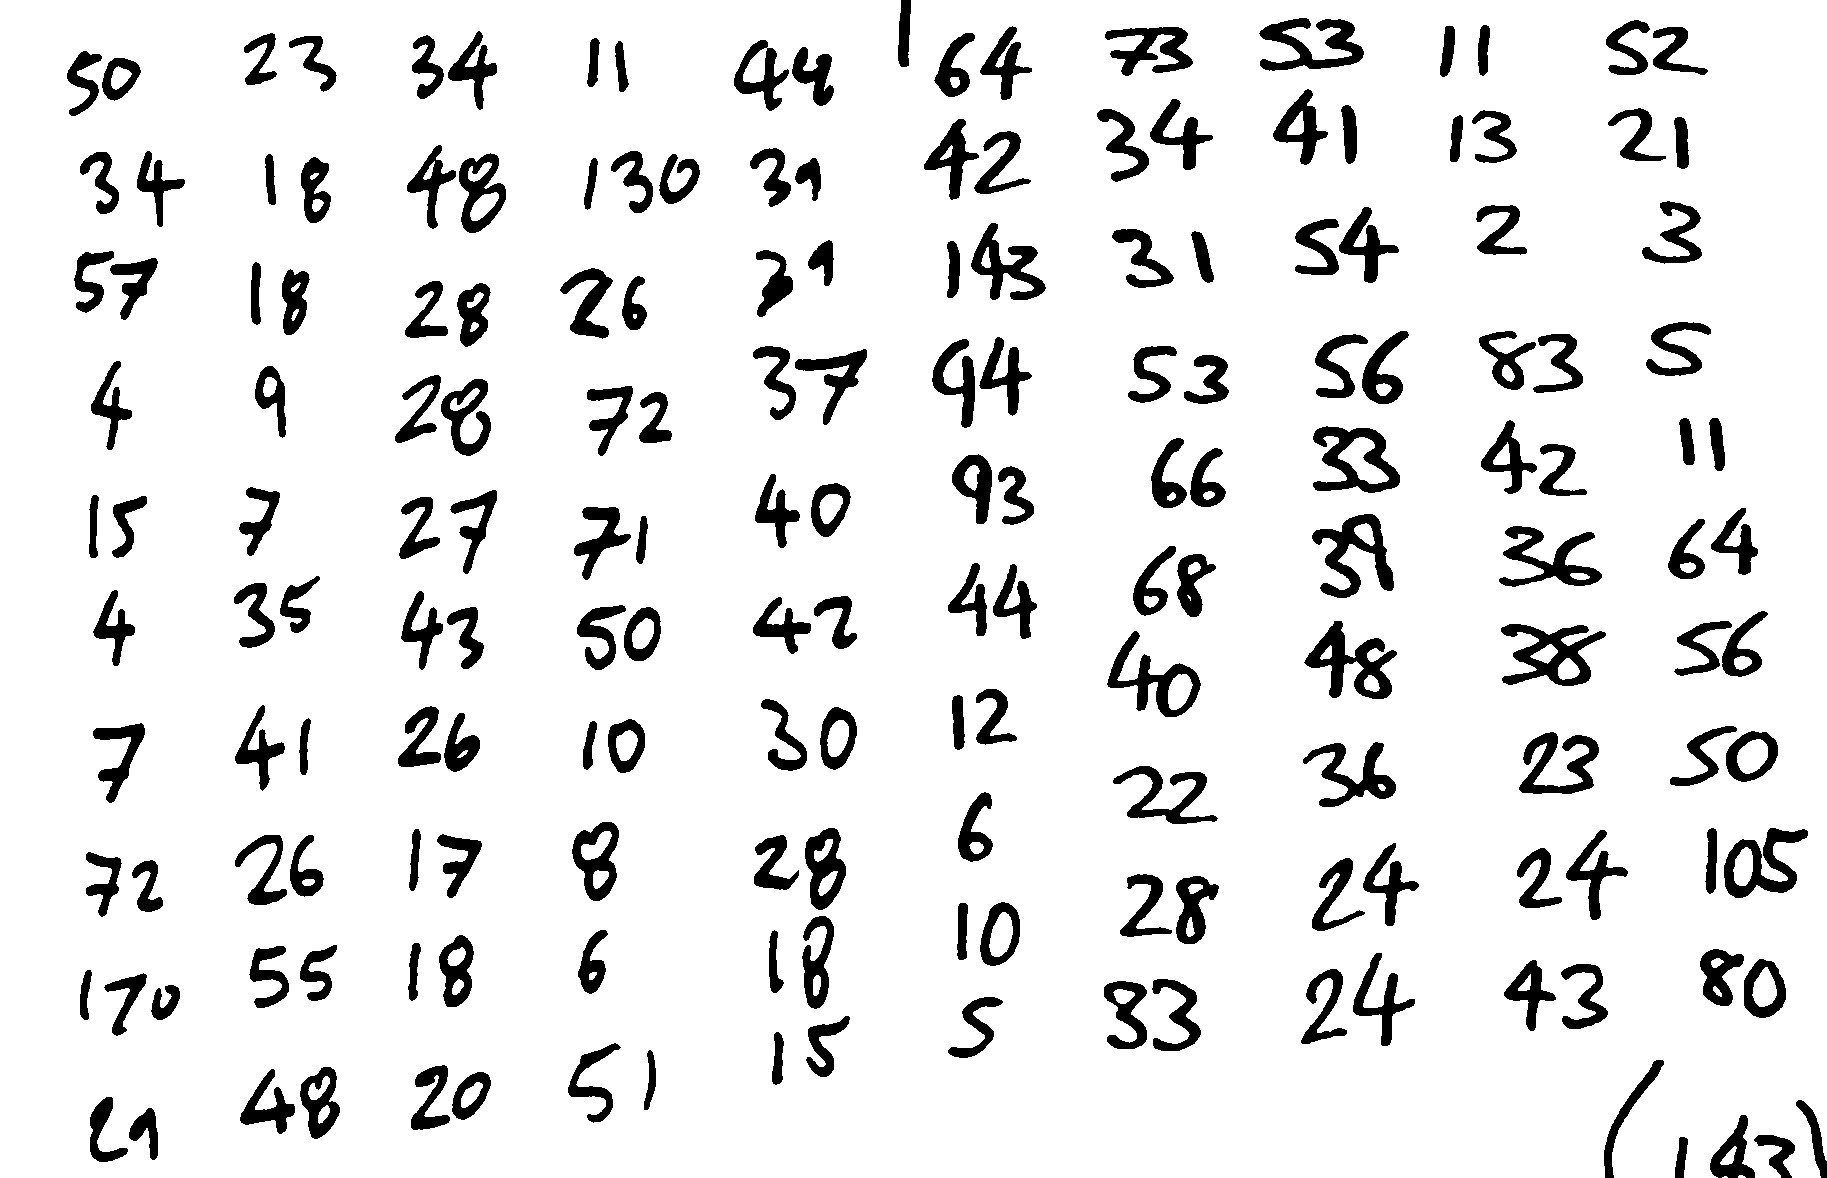 50 23 34 11 44 64 73 53 11 52
34 18 48 130 39 42 34 41 13 21
57 18 28 26 39 143 31 54 2 3
4 9 28 72 37 94 53 56 83 5
15 7 27 71 40 93 66 33 42 11
4 35 43 50 42 44 68 39 36 64
7 41 26 10 30 12 40 48 38 56
72 26 17 8 28 6 22 36 23 50
170 55 18 6 18 10 28 24 24 105
29 48 20 51 15 5 33 24 43 80
(143)